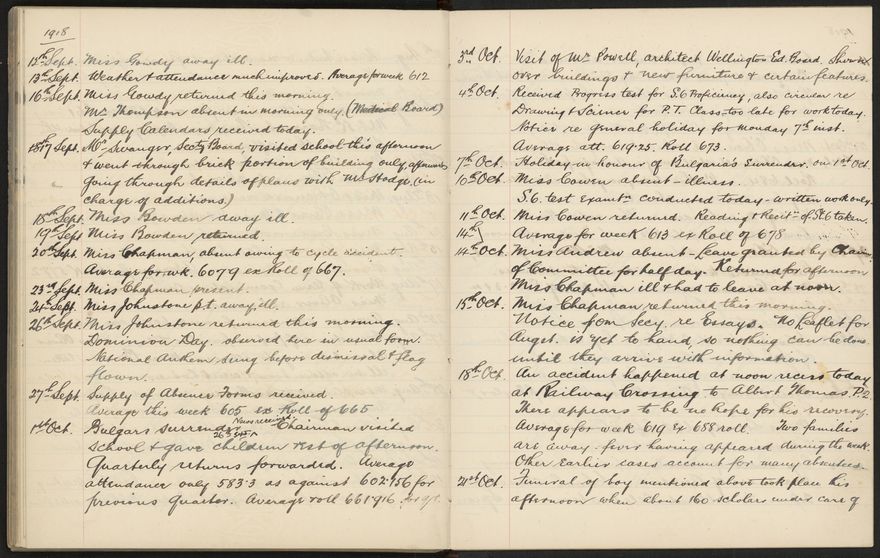 1918
12th Sept. Miss Gowdy away ill.
13th Sept. Weather & attendance much improved. Average for week 612
16th Sept. Miss Gowdy returned this morning.
Mr Thompson absent in morning only. (Medical Board)
Supply Calendars received today.
17 Sept. Mr Swanger, Secty Board, visited school this afternoon
& went through brick portion of building only, afterwards
going through details of plans with Mr Hodge, (in
charge of additions.)
18th Sept. Miss Bowden away ill.
19th Sept Miss Bowden returned.
20th Sept. Miss Chapman, absent owing to cycle accident.
Average for wk. 607.9 ex Roll of 667.
23rd Sept. Miss Chapman present.
24th Sept. Miss Johnstone p.t. away ill.
26th Sept. Miss Johnstone returned this morning.
Dominion Day. observed here in usual form.
National Anthem sung before dismissal & flag
flown.
27th Sept. Supply of Absence Forms received.
Average this week 605 ex Roll of 665
1st Oct. Bulgars surrender News received 26th Sept Chairman visited
school & gave children rest of afternoon.
Quarterly returns forwarded. Average
attendance only 583.3 as against 602.456 for
previous quarter. Average roll 661.916 for qr.
3rd Oct. Visit of Mr Powell, architect Wellington Ed. Board. Shown
over buildings & new furniture & certain features.
4th Oct. Received Progress test for S.6 Proficiency, also circular re
Drawing & Science for P.T. Class, too late for work today.
Notice re general holiday for Monday 7th inst.
Average att. 619.25. Roll 673.
7th Oct. Holiday in honour of Bulgaria's Surrender. on 1st Oct
10th Oct. Miss Cowen absent - illness.
S.6. test Examtn conducted today - written work only.
11th Oct. Miss Cowen returned. Reading & Recitn of St 6 taken.
14th Average for week 613 ex Roll of 678
14th Oct. Miss Andrew absent - Leave granted by Chairm
of Committee for half day. Returned for afternoon
Miss Chapman ill & had to leave at noon.
15th Oct. Miss Chapman returned this morning.
Notice from Secy. re Essays. No leaflet for
Augst. is yet to hand, so nothing can be done
until they arrive with information.
18th Oct. An accident happened at noon recess today
at Railway Crossing to Albert Thomas. P.2.
There appears to be no hope for his recovery.
Average for week 619 ex 688 roll. Two families
are away - fever having appeared during the week.
Other earlier cases account for many absentees.
21st Oct. Funeral of boy mentioned above took place this
afternoon when about 160 scholars under care of